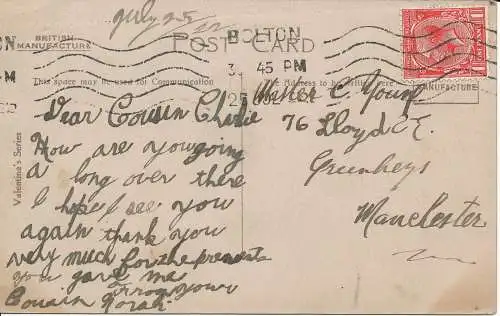 July 25/22
BRITISH
MANUFACTURE
POST CARD
BOLTON
3. 45 PM
This space may be used for Communication
The Address to be Written Here
MANUFACTURE
Valentine's Series
Dear Cousin
How are you going
a long over there
I hope I see you
again thank you
very much for the presents
you gave me
from your
Cousin Norah
C. Young
76 Lloyd
Greenheys
Manchester